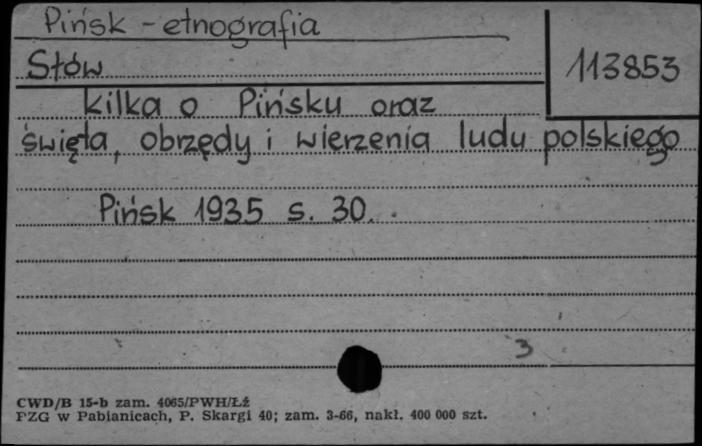 Pińsk - etnografia
Słów
113853
kilka o Pińsku oraz
święta, obrzędy i wierzenia ludu polskiego
Pińsk 1935 s. 30.
3
CWD/B 15-b zam. 4065/PWH/Łż
PZG w Pabianicach, P. Skargi 40; zam. 3-66, nakł. 400 000 szt.